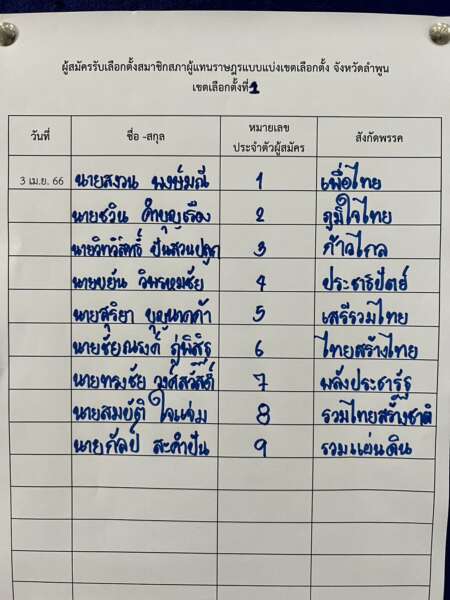 ผู้สมัครรับเลือกตั้งสมาชิกสภาผู้แทนราษฎรแบบแบ่งเขตเลือกตั้ง จังหวัดลำพูน
เขตเลือกตั้งที่ 1
วันที่ ชื่อ -สกุล หมายเลข ประจำตัวผู้สมัคร สังกัดพรรค
3 เม.ย. 66 นายสงวน พงษ์มณี 1 เพื่อไทย
นายชวิน คำบุญเรือง 2 ภูมิใจไทย
นายวิทวิสิทธิ์ ปันสวนปลูก 3 ก้าวไกล
นายขยัน วิพรหมชัย 4 ประชาธิปัตย์
นายสุริยา บุญนาคค้า 5 เสรีรวมไทย
นายชัยณรงค์ ภู่พิสิฐ 6 ไทยสร้างไทย
นายทรงชัย วงค์สวัสดิ์ 7 พลังประชารัฐ
นายสมบัติ ใจแจ่ม 8 รวมไทยสร้างชาติ
นายกัลป์ สะคำปัน 9 รวมแผ่นดิน